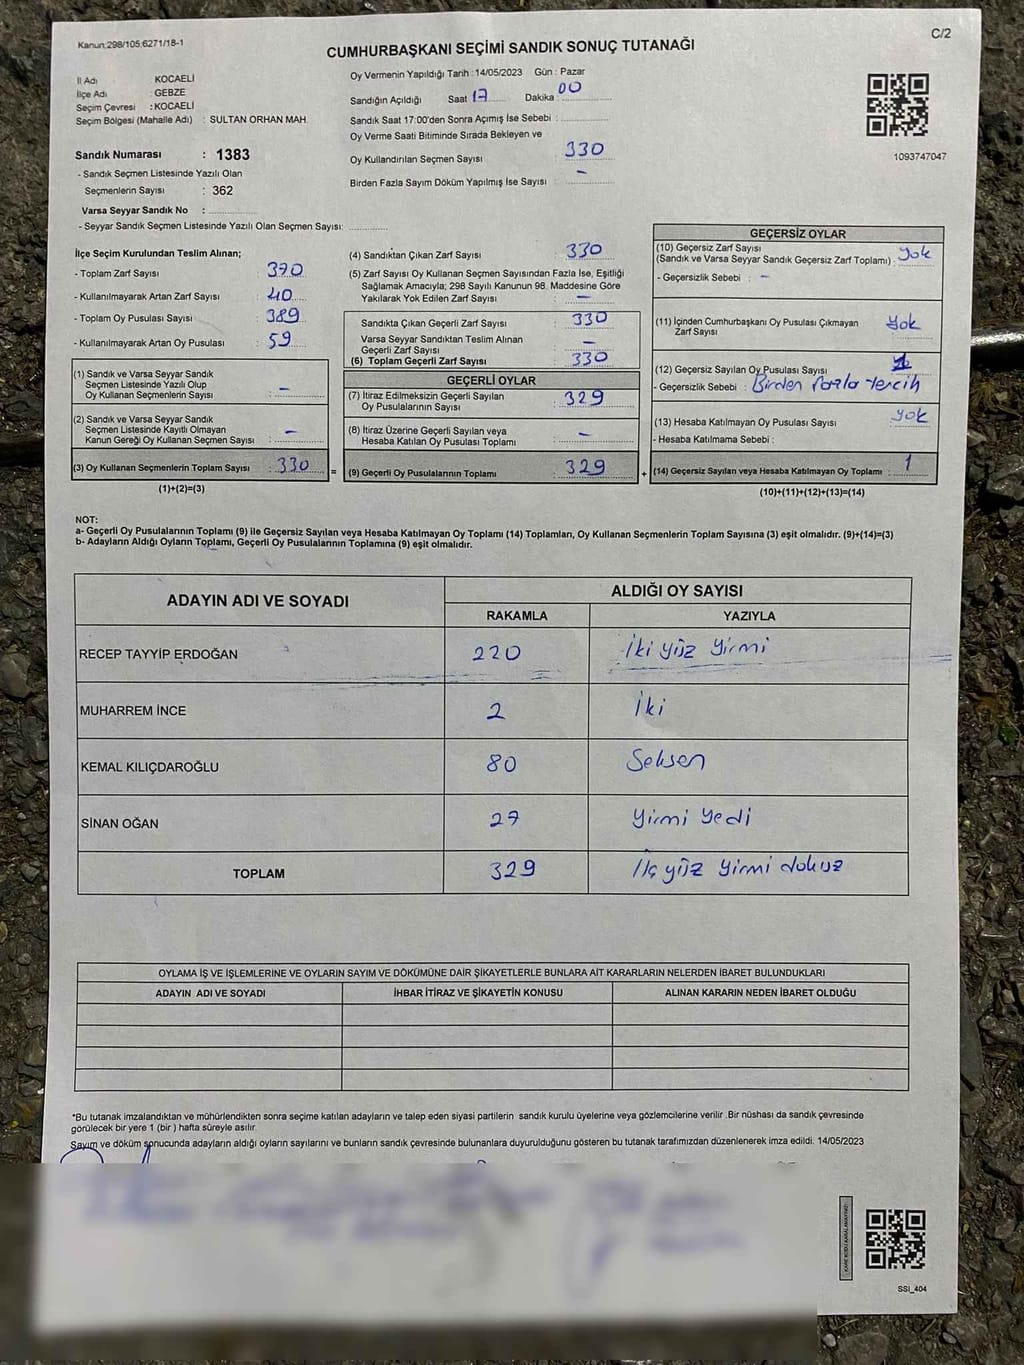 Kanun:298/105,6271/18-1
C/2
CUMHURBAŞKANI SEÇİMİ SANDIK SONUÇ TUTANAĞI
İl Adı KOCAELİ
İlçe Adı : GEBZE
Seçim Çevresi : KOCAELİ
Seçim Bölgesi (Mahalle Adı) : SULTAN ORHAN MAH.
Sandık Numarası : 1383
- Sandık Seçmen Listesinde Yazılı Olan
Seçmenlerin Sayısı : 362
Varsa Seyyar Sandık No :
- Seyyar Sandık Seçmen Listesinde Yazılı Olan Seçmen Sayısı:
Oy Vermenin Yapıldığı Tarih : 14/05/2023 Gün : Pazar
Sandığın Açıldığı Saat 17 Dakika 00
Sandık Saat 17:00'den Sonra Açımış İse Sebebi :
Oy Verme Saati Bitiminde Sırada Bekleyen ve
Oy Kullandırılan Seçmen Sayısı : 330
Birden Fazla Sayım Döküm Yapılmış İse Sayısı : -
1093747047
İlçe Seçim Kurulundan Teslim Alınan;
- Toplam Zarf Sayısı : 370
- Kullanılmayarak Artan Zarf Sayısı : 40
- Toplam Oy Pusulası Sayısı : 389
- Kullanılmayarak Artan Oy Pusulası : 59
(1) Sandık ve Varsa Seyyar Sandık
Seçmen Listesinde Yazılı Olup
Oy Kullanan Seçmenlerin Sayısı : -
(2) Sandık ve Varsa Seyyar Sandık
Seçmen Listesinde Kayıtlı Olmayan
Kanun Gereği Oy Kullanan Seçmen Sayısı : -
(3) Oy Kullanan Seçmenlerin Toplam Sayısı : 330
(1)+(2)=(3)
=
(4) Sandıktan Çıkan Zarf Sayısı : 330
(5) Zarf Sayısı Oy Kullanan Seçmen Sayısından Fazla İse, Eşitliği
Sağlamak Amacıyla; 298 Sayılı Kanunun 98. Maddesine Göre
Yakılarak Yok Edilen Zarf Sayısı : -
Sandıkta Çıkan Geçerli Zarf Sayısı : 330
Varsa Seyyar Sandıktan Teslim Alınan
Geçerli Zarf Sayısı : -
(6) Toplam Geçerli Zarf Sayısı : 330
GEÇERLİ OYLAR
(7) İtiraz Edilmeksizin Geçerli Sayılan
Oy Pusulalarının Sayısı : 329
(8) İtiraz Üzerine Geçerli Sayılan veya
Hesaba Katılan Oy Pusulası Toplamı : -
(9) Geçerli Oy Pusulalarının Toplamı : 329
+
GEÇERSİZ OYLAR
(10) Geçersiz Zarf Sayısı
(Sandık ve Varsa Seyyar Sandık Geçersiz Zarf Toplamı) : Yok
- Geçersizlik Sebebi : -
(11) İçinden Cumhurbaşkanı Oy Pusulası Çıkmayan
Zarf Sayısı : Yok
(12) Geçersiz Sayılan Oy Pusulası Sayısı
- Geçersizlik Sebebi : Birden fazla tercih
(13) Hesaba Katılmayan Oy Pusulası Sayısı : yok
- Hesaba Katılmama Sebebi :
(14) Geçersiz Sayılan veya Hesaba Katılmayan Oy Toplamı : 1
(10)+(11)+(12)+(13)=(14)
NOT:
a- Geçerli Oy Pusulalarının Toplamı (9) ile Geçersiz Sayılan veya Hesaba Katılmayan Oy Toplamı (14) Toplamları, Oy Kullanan Seçmenlerin Toplam Sayısına (3) eşit olmalıdır. (9)+(14)=(3)
b- Adayların Aldığı Oyların Toplamı, Geçerli Oy Pusulalarının Toplamına (9) eşit olmalıdır.
ADAYIN ADI VE SOYADI
ALDIĞI OY SAYISI
RAKAMLA YAZIYLA
RECEP TAYYİP ERDOĞAN 220 İki yüz yirmi
MUHARREM İNCE 2 İki
KEMAL KILIÇDAROĞLU 80 Seksen
SİNAN OĞAN 27 Yirmi yedi
TOPLAM 329 Üç yüz yirmi dokuz
OYLAMA İŞ VE İŞLEMLERİNE VE OYLARIN SAYIM VE DÖKÜMÜNE DAİR ŞİKAYETLERLE BUNLARA AİT KARARLARIN NELERDEN İBARET BULUNDUKLARI
ADAYIN ADI VE SOYADI İHBAR İTİRAZ VE ŞİKAYETİN KONUSU ALINAN KARARIN NEDEN İBARET OLDUĞU
*Bu tutanak imzalandıktan ve mühürlendikten sonra seçime katılan adayların ve talep eden siyasi partilerin sandık kurulu üyelerine veya gözlemcilerine verilir .Bir nüshası da sandık çevresinde
görülecek bir yere 1 (bir ) hafta süreyle asılır.
Sayım ve döküm sonucunda adayların aldığı oyların sayılarını ve bunların sandık çevresinde bulunanlara duyurulduğunu gösteren bu tutanak tarafımızdan düzenlenerek imza edildi. 14/05/2023
SSİ_404